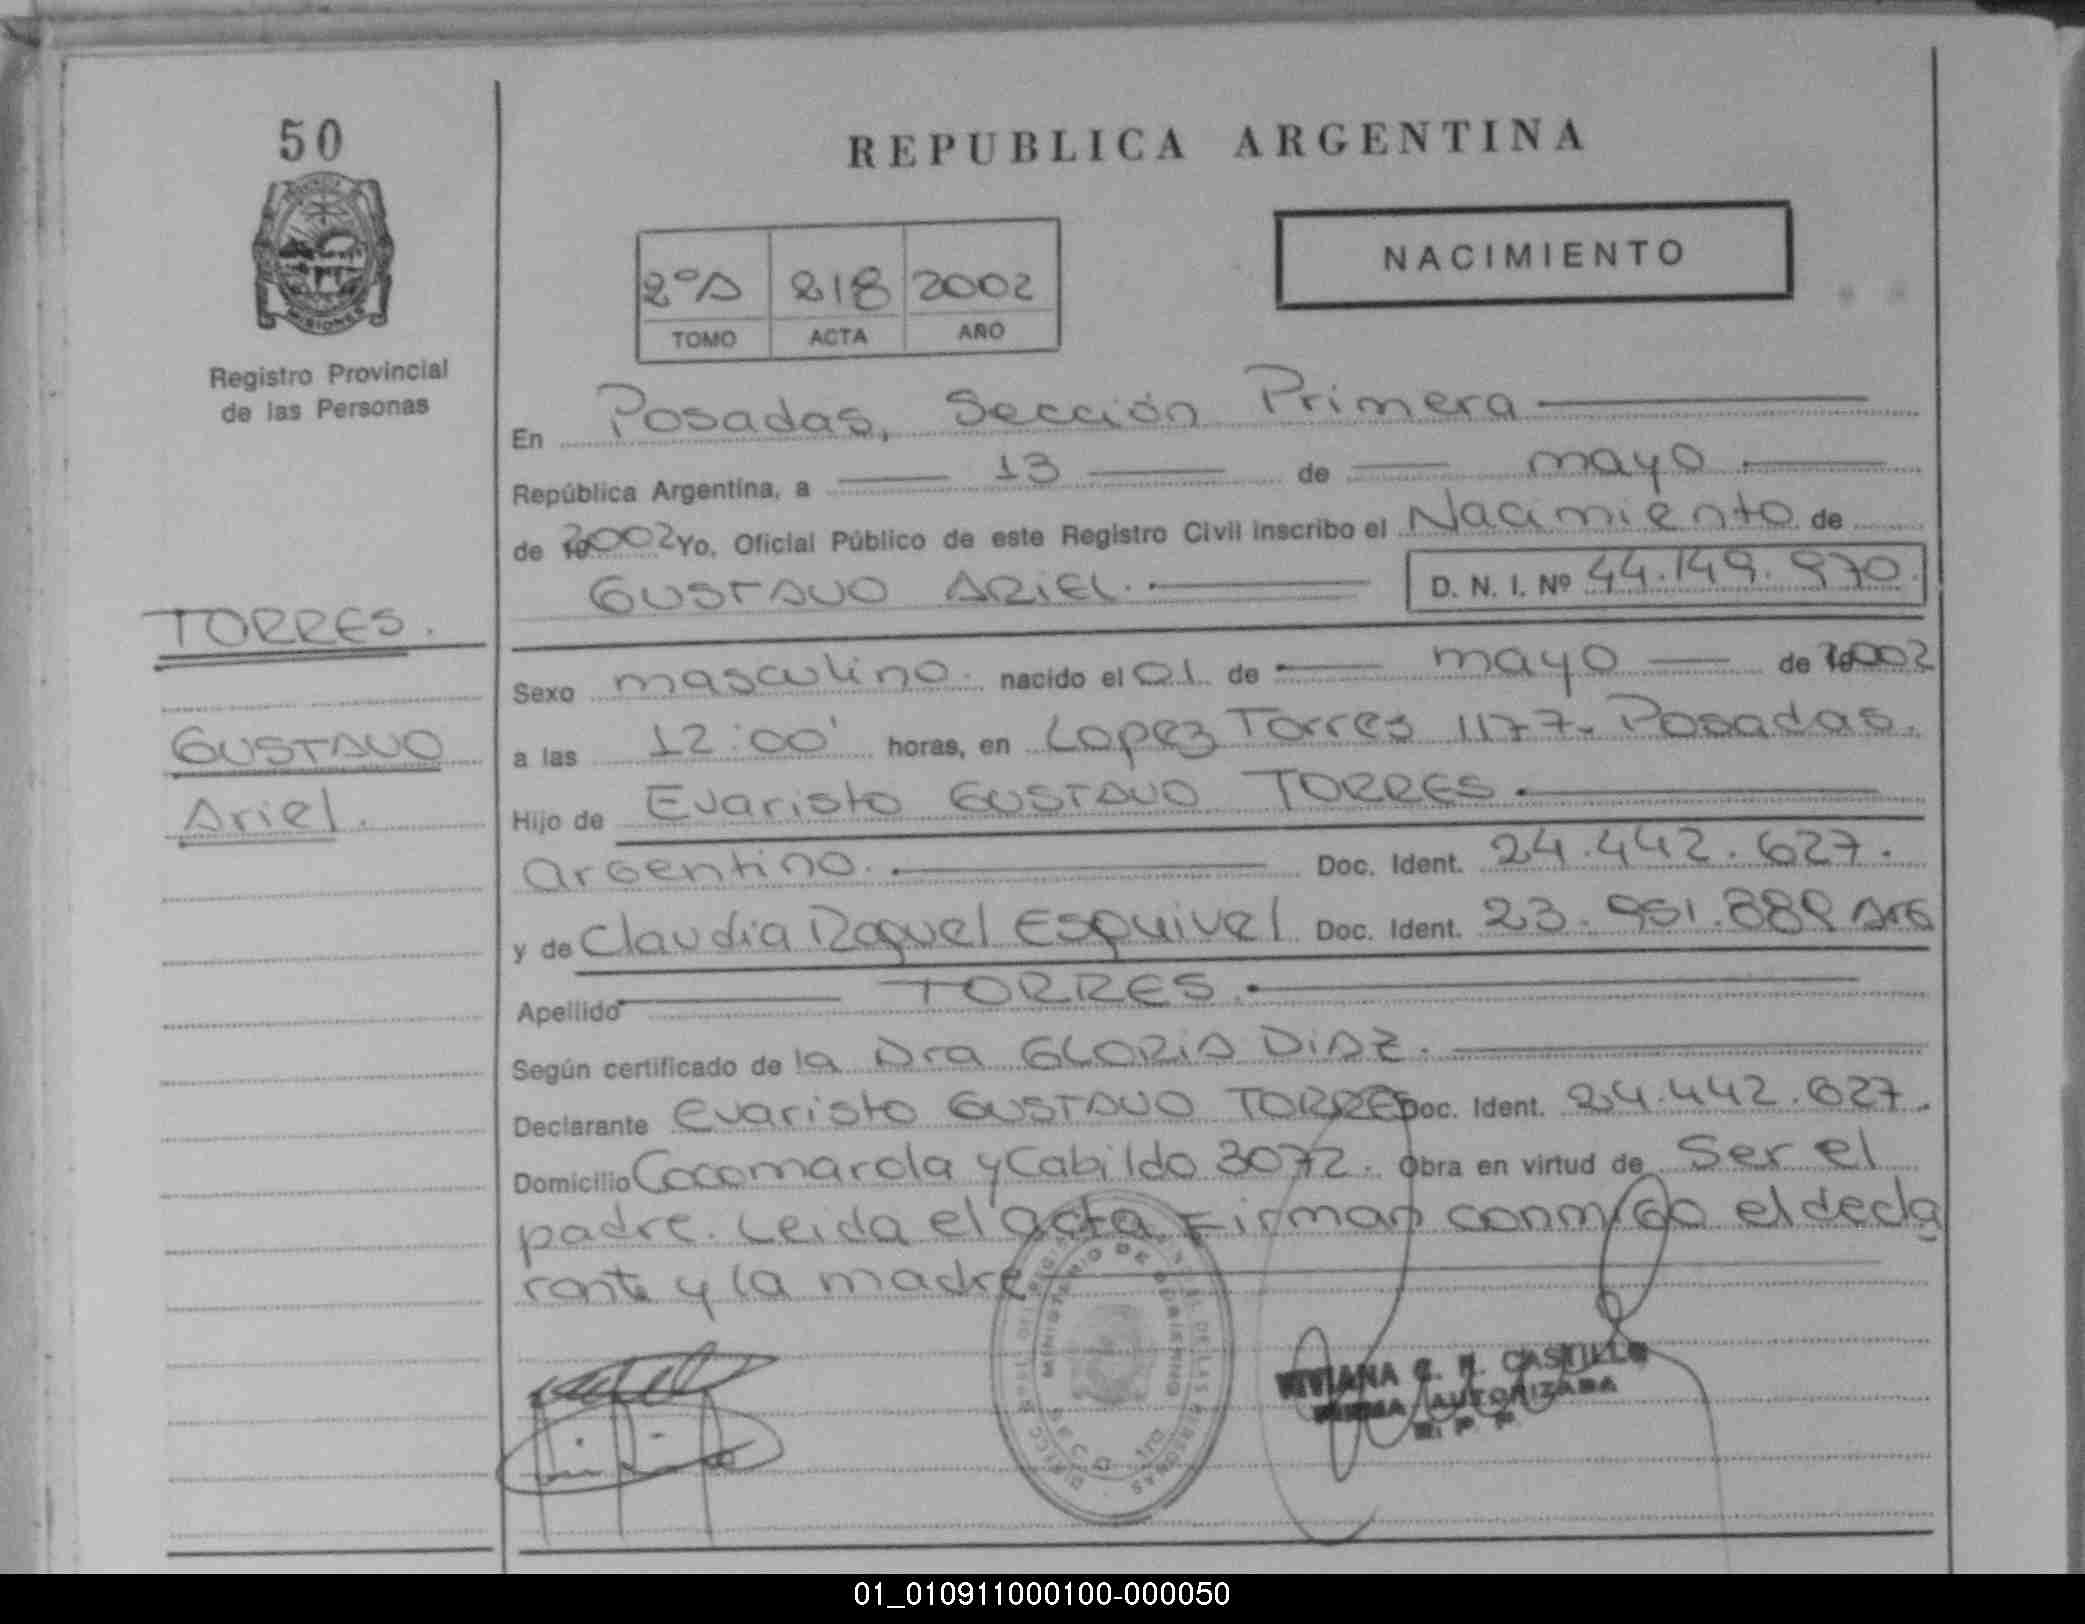 50
MISIONES
Registro Provincial
de las Personas
TORRES.
GUSTAVO
Ariel.
REPUBLICA ARGENTINA
NACIMIENTO
2ºA 218 2002
TOMO ACTA AÑO
En Posadas, Sección Primera
República Argentina, a 13 de mayo
de 2002 Yo, Oficial Público de este Registro Civil inscribo el Nacimiento de
GUSTAVO ARIEL. D. N. I. Nº 44.149.970.
Sexo masculino. nacido el 01 de mayo de 2002
a las 12:00' horas, en Lopez Torres 1177- Posadas.
Hijo de Evaristo GUSTAVO TORRES.
argentino. Doc. Ident. 24.442.627.
y de Claudia Raquel Esquivel Doc. Ident. 23.951.889 Arg
Apellido TORRES.
Según certificado de la Dra GLORIA DIAZ.
Declarante Evaristo GUSTAVO TORRES Doc. Ident. 24.442.627.
Domicilio Cocomarola y Cabildo 3072. Obra en virtud de Ser el
padre. Leida el acta, Firman conmigo el decla
rante y la madre
MINISTERIO DE GOBIERNO
VIVIANA C. R. CASTILLO
FIRMA AUTORIZADA
R. P. P.
01_010911000100-000050